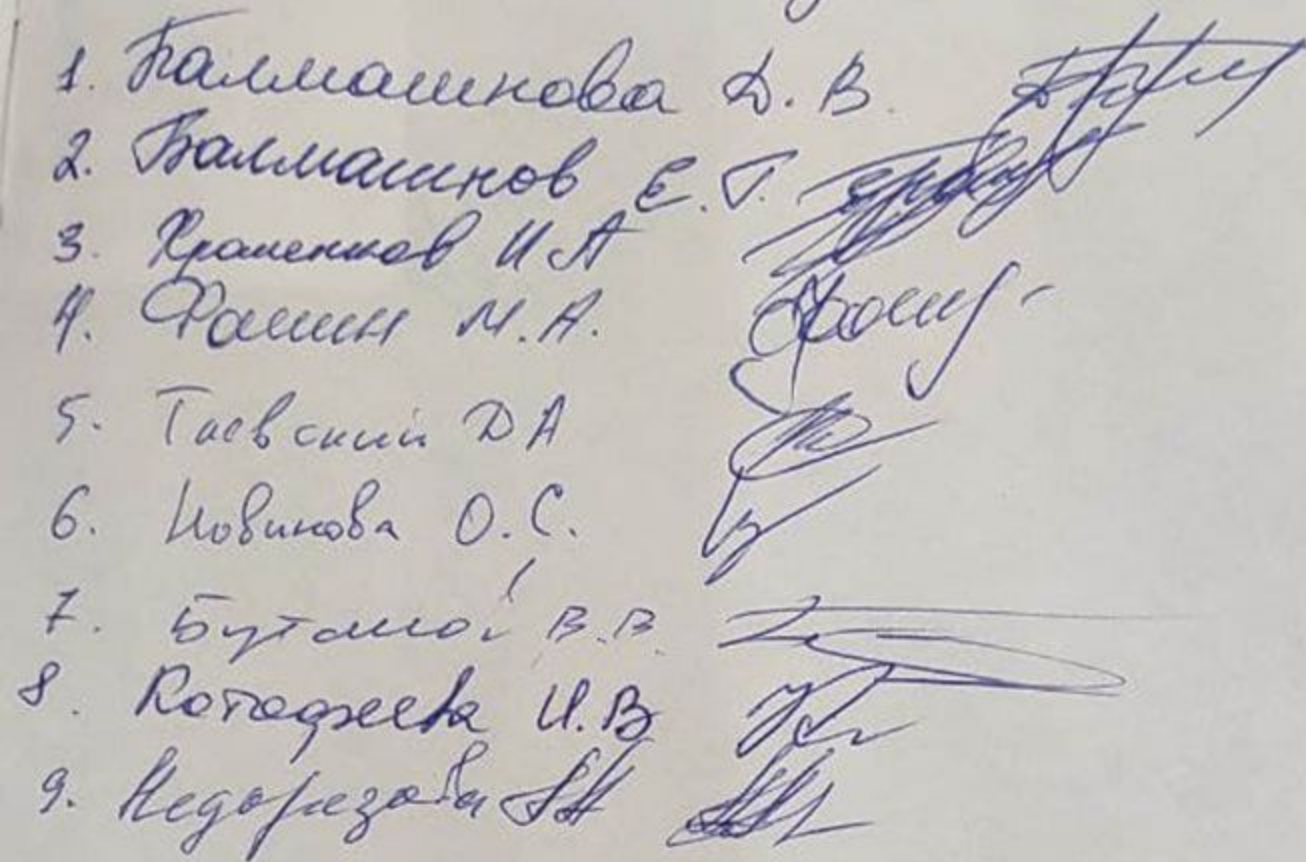 1. Балмашнова Д. В.
2. Балмашнов Е. Г.
3. Храменков И А
4. Фомин М. А.
5. Таевский Д А
6. Новикова О. С.
7. В. В.
8. И. В
9. Недорезова